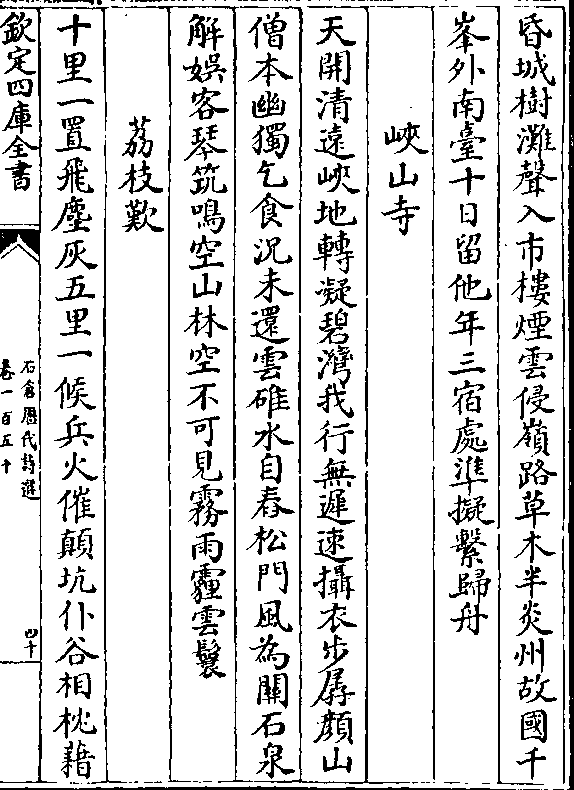 昏城樹灘聲入市樓煙雲侵嶺路草木半炎州故國千
峯外南臺十日留他年三宿處準擬繫歸舟
峽山寺
天開清遠峽地轉凝碧灣我行無遲速攝衣步孱顏山
僧本幽獨乞食況未還雲碓水自舂松門風為關石泉
解娛客琴筑鳴空山林空不可見霧雨霾雲鬟
荔枝歎
十里一置飛塵灰五里一候兵火催顛坑仆谷相枕藉
欽定四庫全書
石倉歷代詩選
卷一百五十
四十